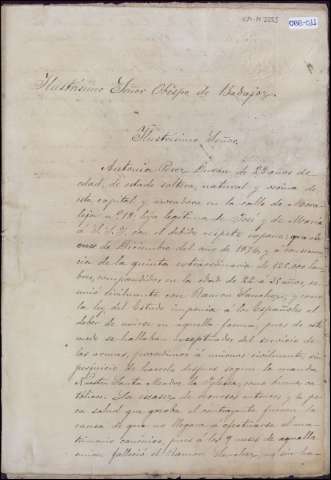 Ilustrísimo Señor Obispo de Badajoz.
Ilustrísimo Señor.
Antonia Perez Duran de 29 años de
edad, de estado soltera, natural y vecina de
esta capital, y moradora en la calle de
nº 19, hija legitima de José y de María
a V.S.I. con el debido respeto expone: que el
mes de Diciembre del año de 1874, y a consecuen-
cia de la quinta extraordinaria de 125.000 hom-
bres, comprendidos en la edad de 22 a años, se
unió civilmente con Ramon Sanchez, y como
la ley del Estado imponia a los Españoles el
deber de unirse en aquella forma, pues de este
modo se hallaban exceptuados del servicio de
las armas, procedimos a unirnos civilmente, sin
perjuicio de hacerlo despues segun lo manda
Nuestra Santa Madre la Iglesia, como buenos ca-
tólicos. La escasez de recursos entonces y la po-
ca salud que gozaba el contrayente fueron la
causa de que no llegara a efectuarse el ma-
trimonio canónico, pues a los 9 meses de aquella
union falleció el Ramon Sanchez, sin ha-